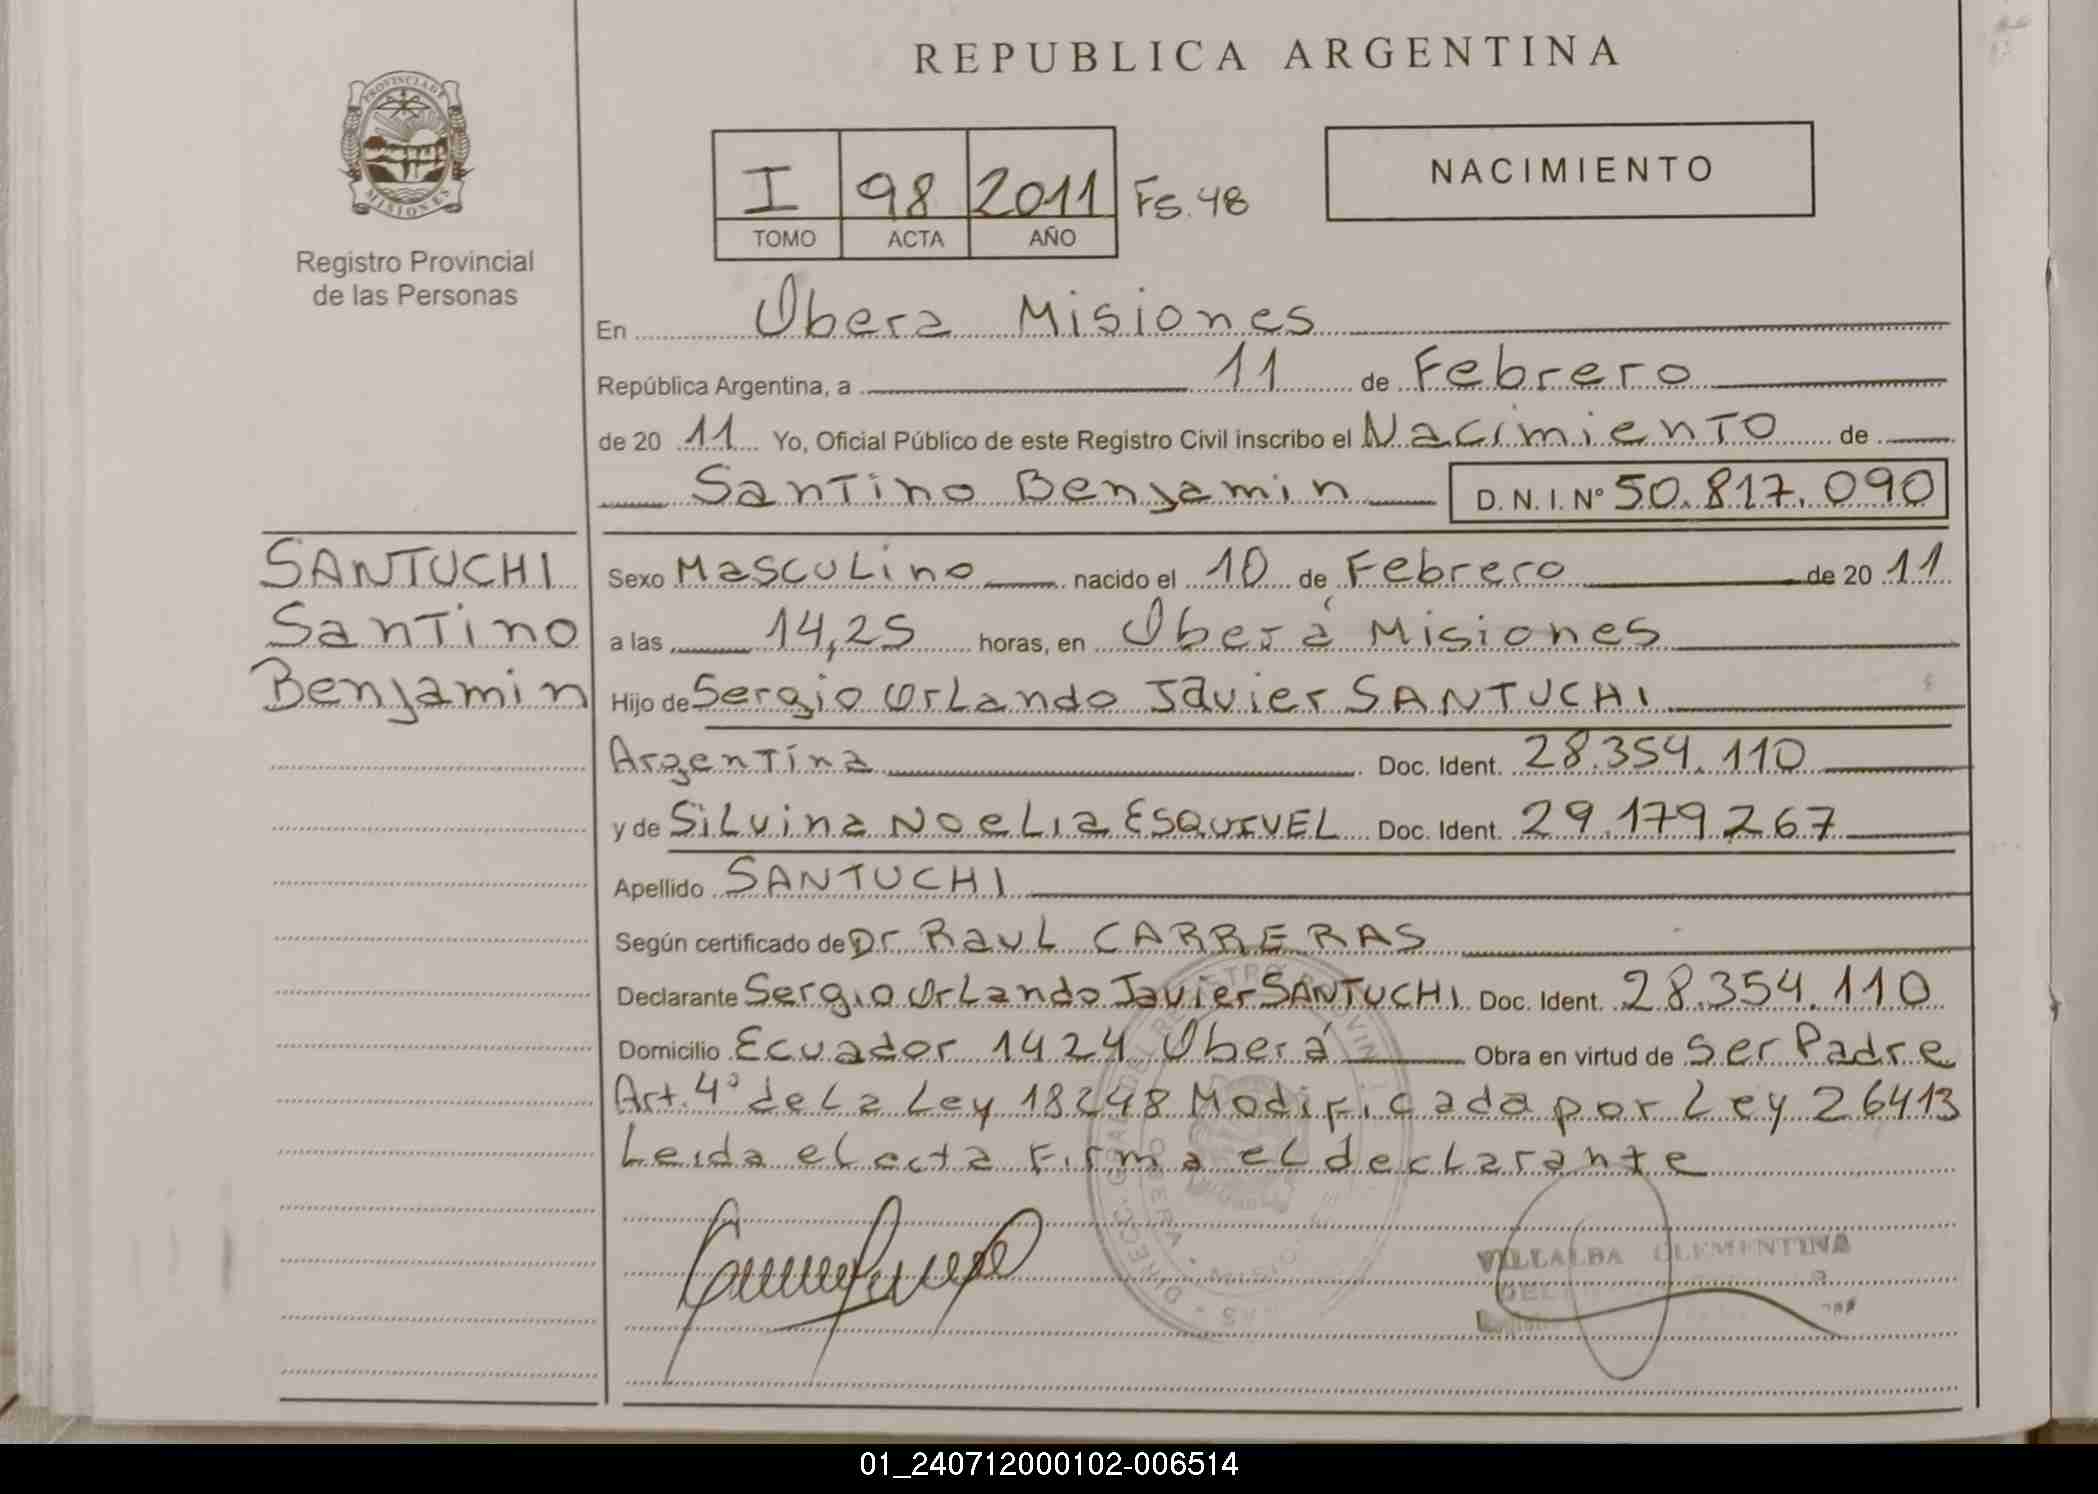 REPUBLICA ARGENTINA
PROVINCIA DE
MISIONES
Registro Provincial
de las Personas
I 98 2011 Fs. 48
TOMO ACTA AÑO
NACIMIENTO
En Obera Misiones
República Argentina, a 11 de Febrero
de 20 11 Yo, Oficial Público de este Registro Civil inscribo el Nacimiento de
Santino Benjamin D. N. I. Nº 50.817.090
SANTUCHI
Santino
Benjamin
Sexo Masculino nacido el 10 de Febrero de 20 11
a las 14,25 horas, en Oberá Misiones
Hijo de Sergio Orlando Javier SANTUCHI
Argentina Doc. Ident. 28.354.110
y de Silvina Noelia ESQUIVEL Doc. Ident. 29.179.267
Apellido SANTUCHI
Según certificado de Dr Raul CARRERAS
Declarante Sergio Orlando Javier SANTUCHI Doc. Ident. 28.354.110
Domicilio Ecuador 1424 Oberá Obra en virtud de Ser Padre
Art. 4º de La Ley 18248 Modificada por Ley 26413
Leida el acta Firma el declarante
VILLALBA CLEMENTINA
01_240712000102-006514